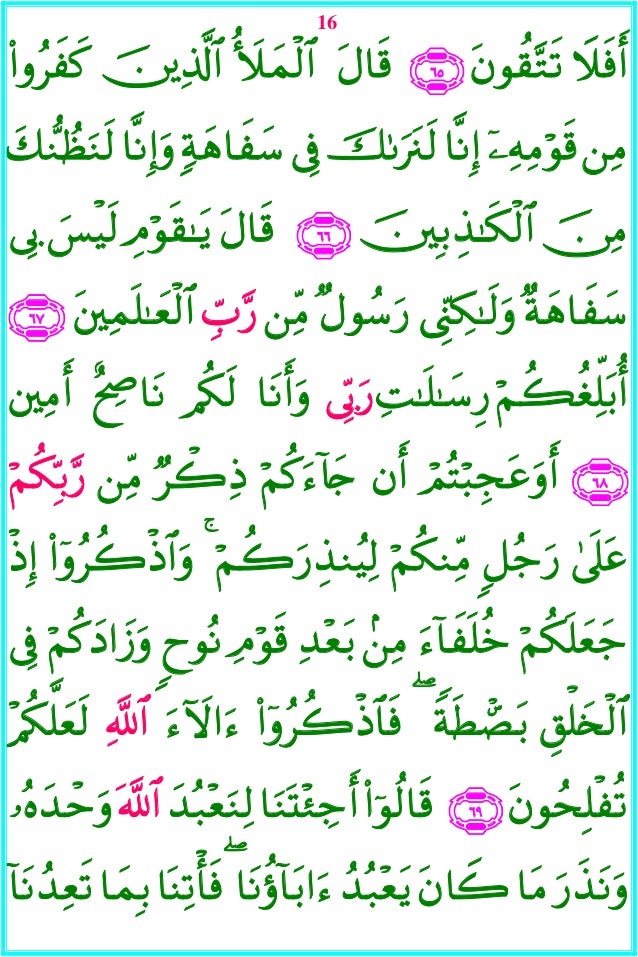 16
أَفَلَا تَتَّقُونَ ٦٥ قَالَ ٱلْمَلَأُ ٱلَّذِينَ كَفَرُوا۟
مِن قَوْمِهِۦٓ إِنَّا لَنَرَىٰكَ فِى سَفَاهَةٍ وَإِنَّا لَنَظُنُّكَ
مِنَ ٱلْكَـٰذِبِينَ ٦٦ قَالَ يَـٰقَوْمِ لَيْسَ بِى
سَفَاهَةٌ وَلَـٰكِنِّى رَسُولٌ مِّن رَّبِّ ٱلْعَـٰلَمِينَ ٦٧
أُبَلِّغُكُمْ رِسَـٰلَـٰتِ رَبِّى وَأَنَا۠ لَكُمْ نَاصِحٌ أَمِينٌ
٦٨ أَوَعَجِبْتُمْ أَن جَآءَكُمْ ذِكْرٌ مِّن رَّبِّكُمْ
عَلَىٰ رَجُلٍ مِّنكُمْ لِيُنذِرَكُمْ ۚ وَٱذْكُرُوٓا۟ إِذْ
جَعَلَكُمْ خُلَفَآءَ مِنۢ بَعْدِ قَوْمِ نُوحٍ وَزَادَكُمْ فِى
ٱلْخَلْقِ بَصْۜطَةً ۖ فَٱذْكُرُوٓا۟ ءَالَآءَ ٱللَّهِ لَعَلَّكُمْ
تُفْلِحُونَ ٦٩ قَالُوٓا۟ أَجِئْتَنَا لِنَعْبُدَ ٱللَّهَ وَحْدَهُۥ
وَنَذَرَ مَا كَانَ يَعْبُدُ ءَابَآؤُنَا ۖ فَأْتِنَا بِمَا تَعِدُنَآ